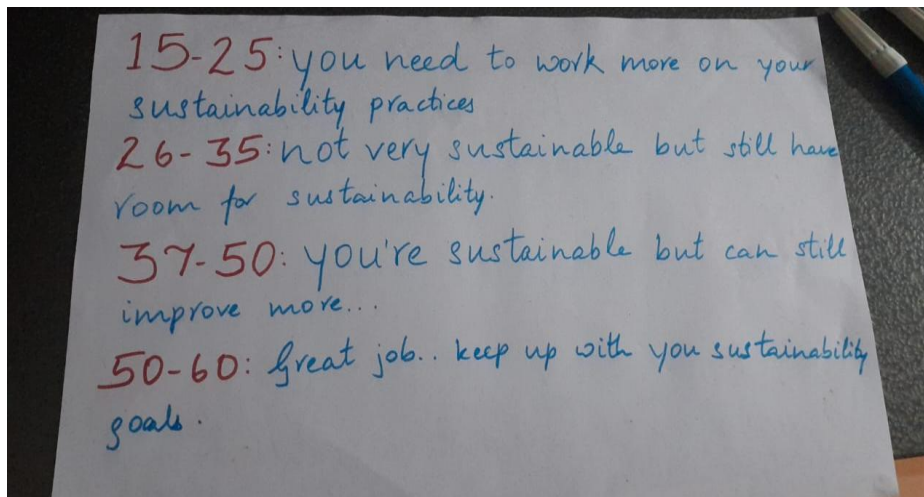 15-25: you need to work more on your
sustainability practices
26-35: not very sustainable but still have
room for sustainability.
37-50: you're sustainable but can still
improve more...
50-60: Great job.. keep up with you sustainability
goals.